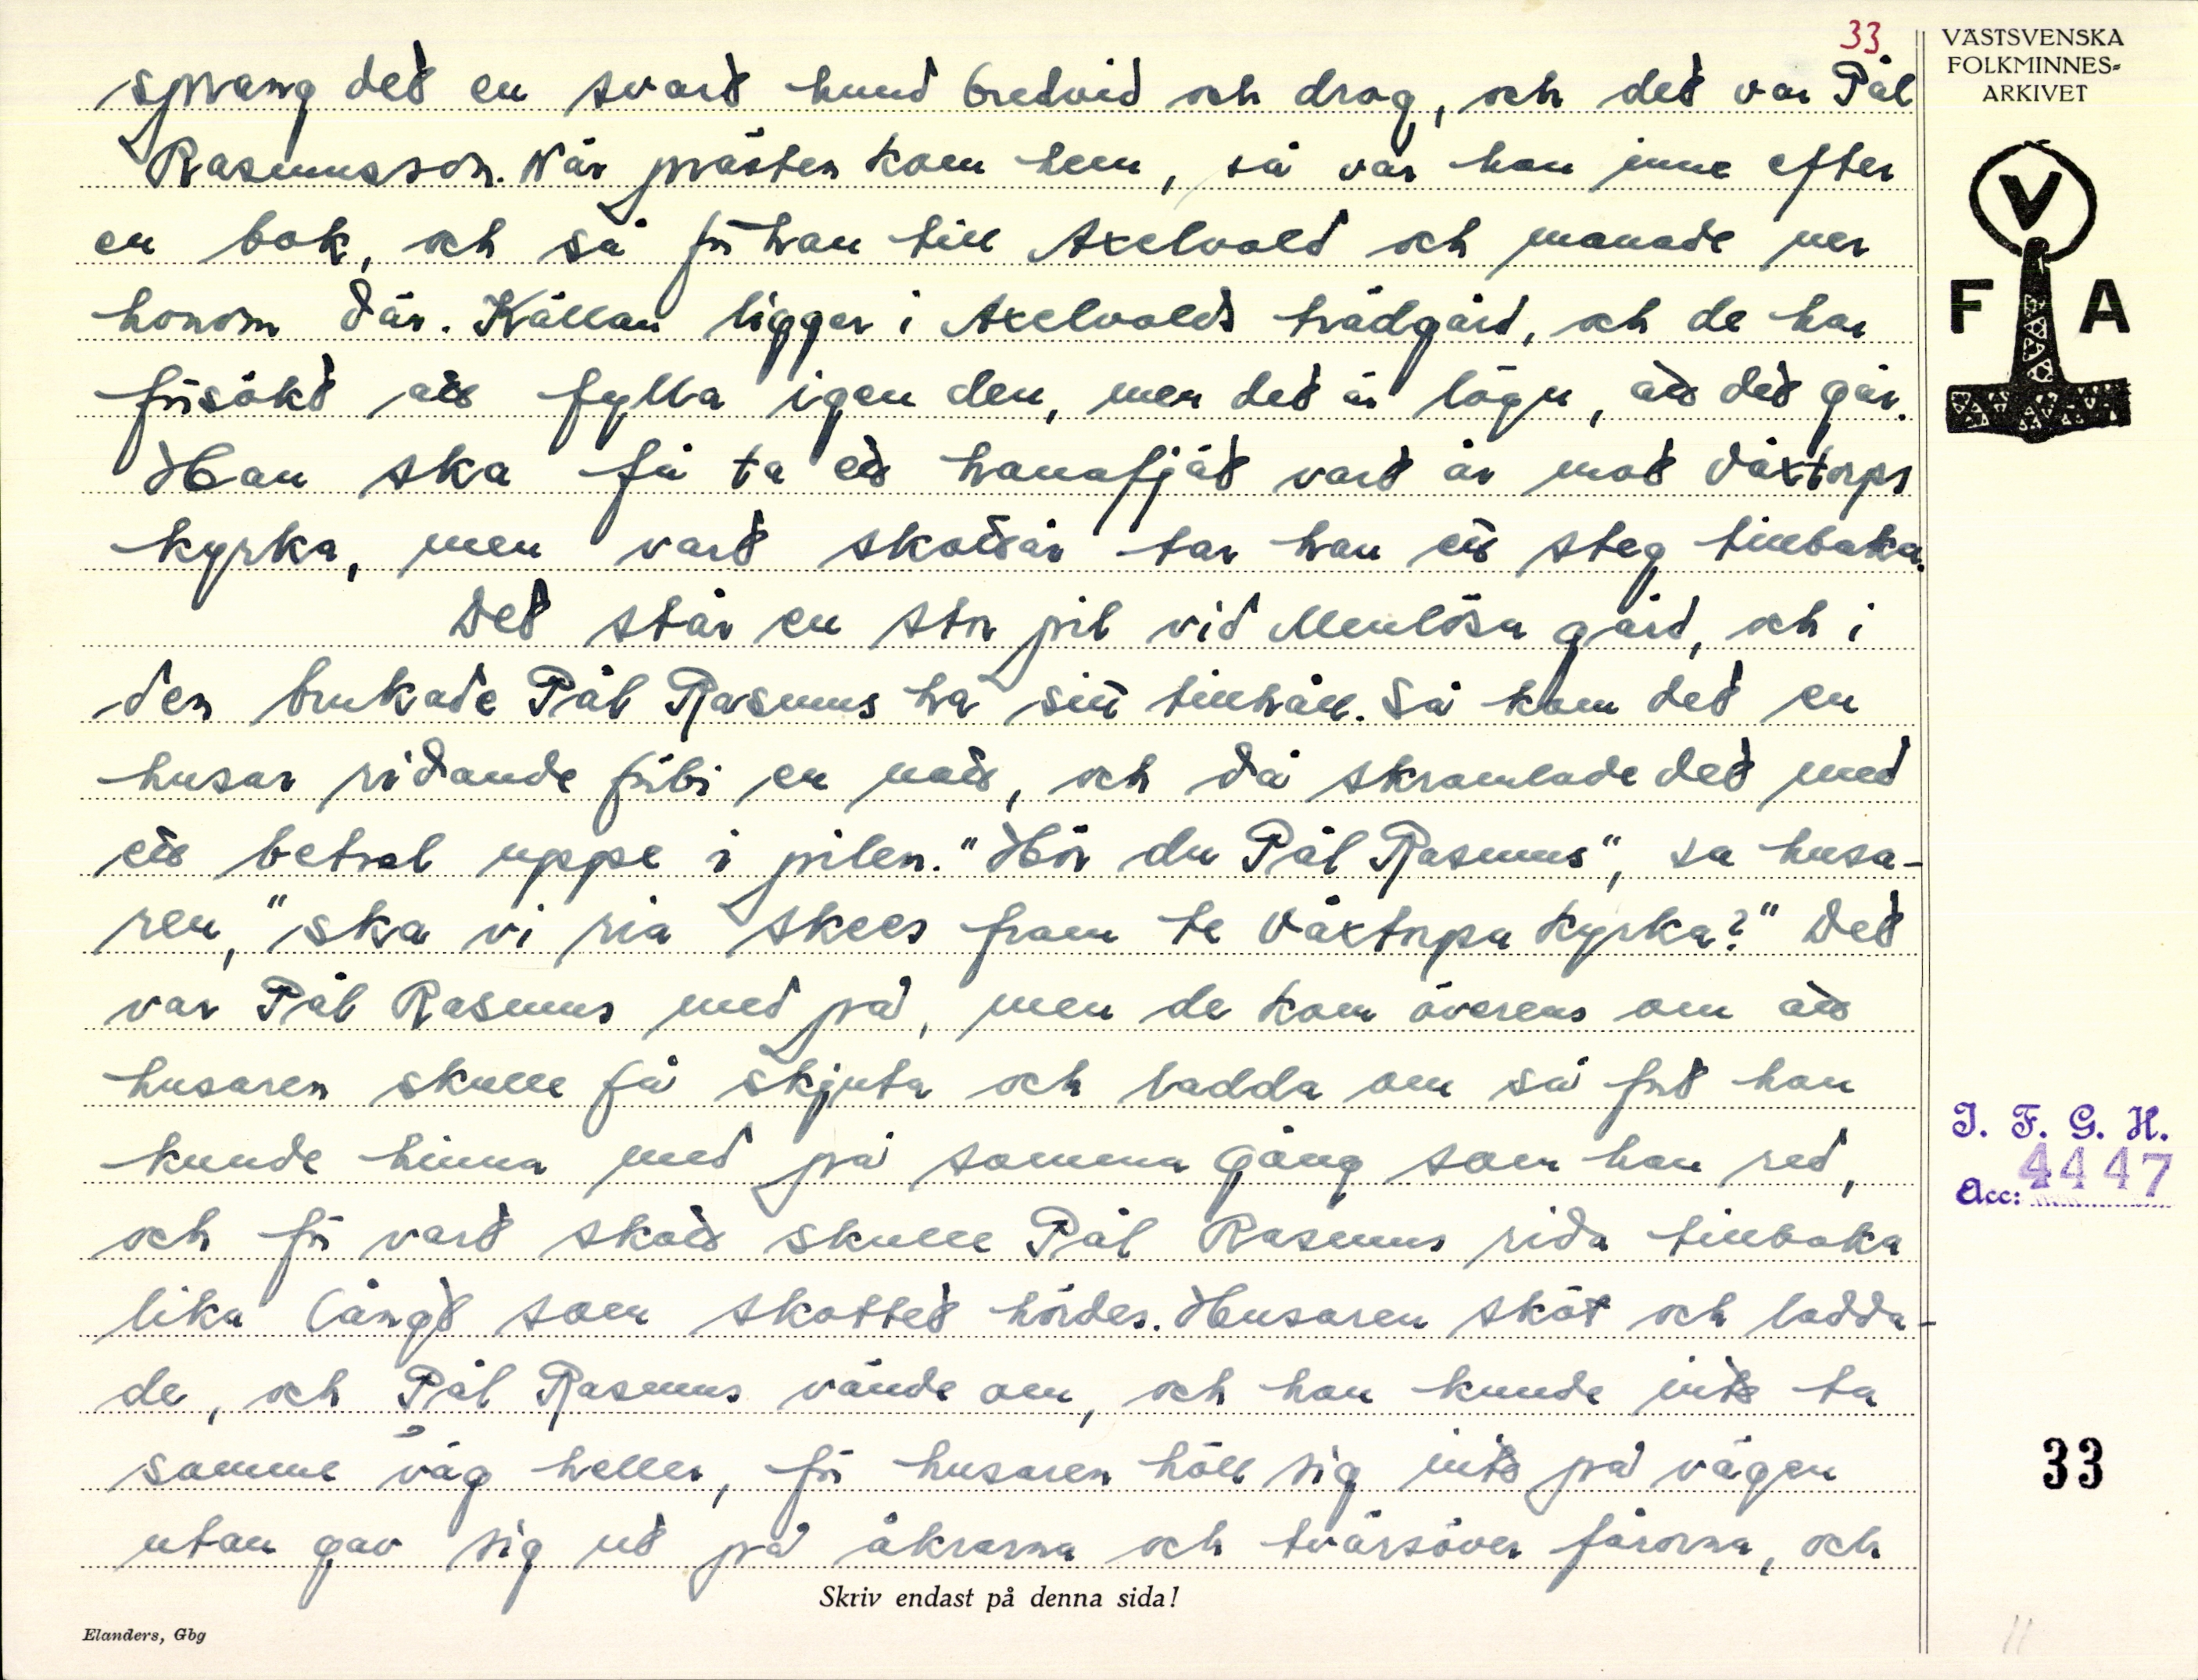 33.
sprang det en svart hund bredvid och drog, och det var Pål
Rasmusson. När prästen kom hem, så var han inne efter
en bok, och så för han till Axelvold och manade ner
honom där. Källan ligger i Axelvolds trädgård, och de har
försökt att fylla igen den, men det är lögn, att det går.
Han ska få ta ett hanafjät vart år mot Växtorps
kyrka, men vart skottår tar han ett steg tillbaka.
Det står en stor pil vid Menlösa gård, och i
den brukade Pål Rasmus ha sitt tillhåll. Så kom det en
husar ridande förbi en natt, och då skramlade det med
ett betsel uppe i pilen. "Hör du Pål Rasmus", sa husa-
ren, "ska vi ria skees fram te Växtorpa kyrka?" Det
var Pål Rasmus med på, men de kom överens om att
husaren skulle få skjuta och ladda om så fort han
kunde hinna med på samma gång som han red,
och för vart skott skulle Pål Rasmus rida tillbaka
lika långt som skottet hördes. Husaren sköt och ladda-
de, och Pål Rasmus vände om, och han kunde inte ta
samme väg heller, för husaren höll sig inte på vägen
utan gav sig ut på åkrarna och tvärsöver fårorna, och
Skriv endast på denna sida!
Elanders, Gbg
VÄSTSVENSKA
FOLKMINNES-
ARKIVET
V
F A
I. F. G. H.
Acc: 4447
33
11